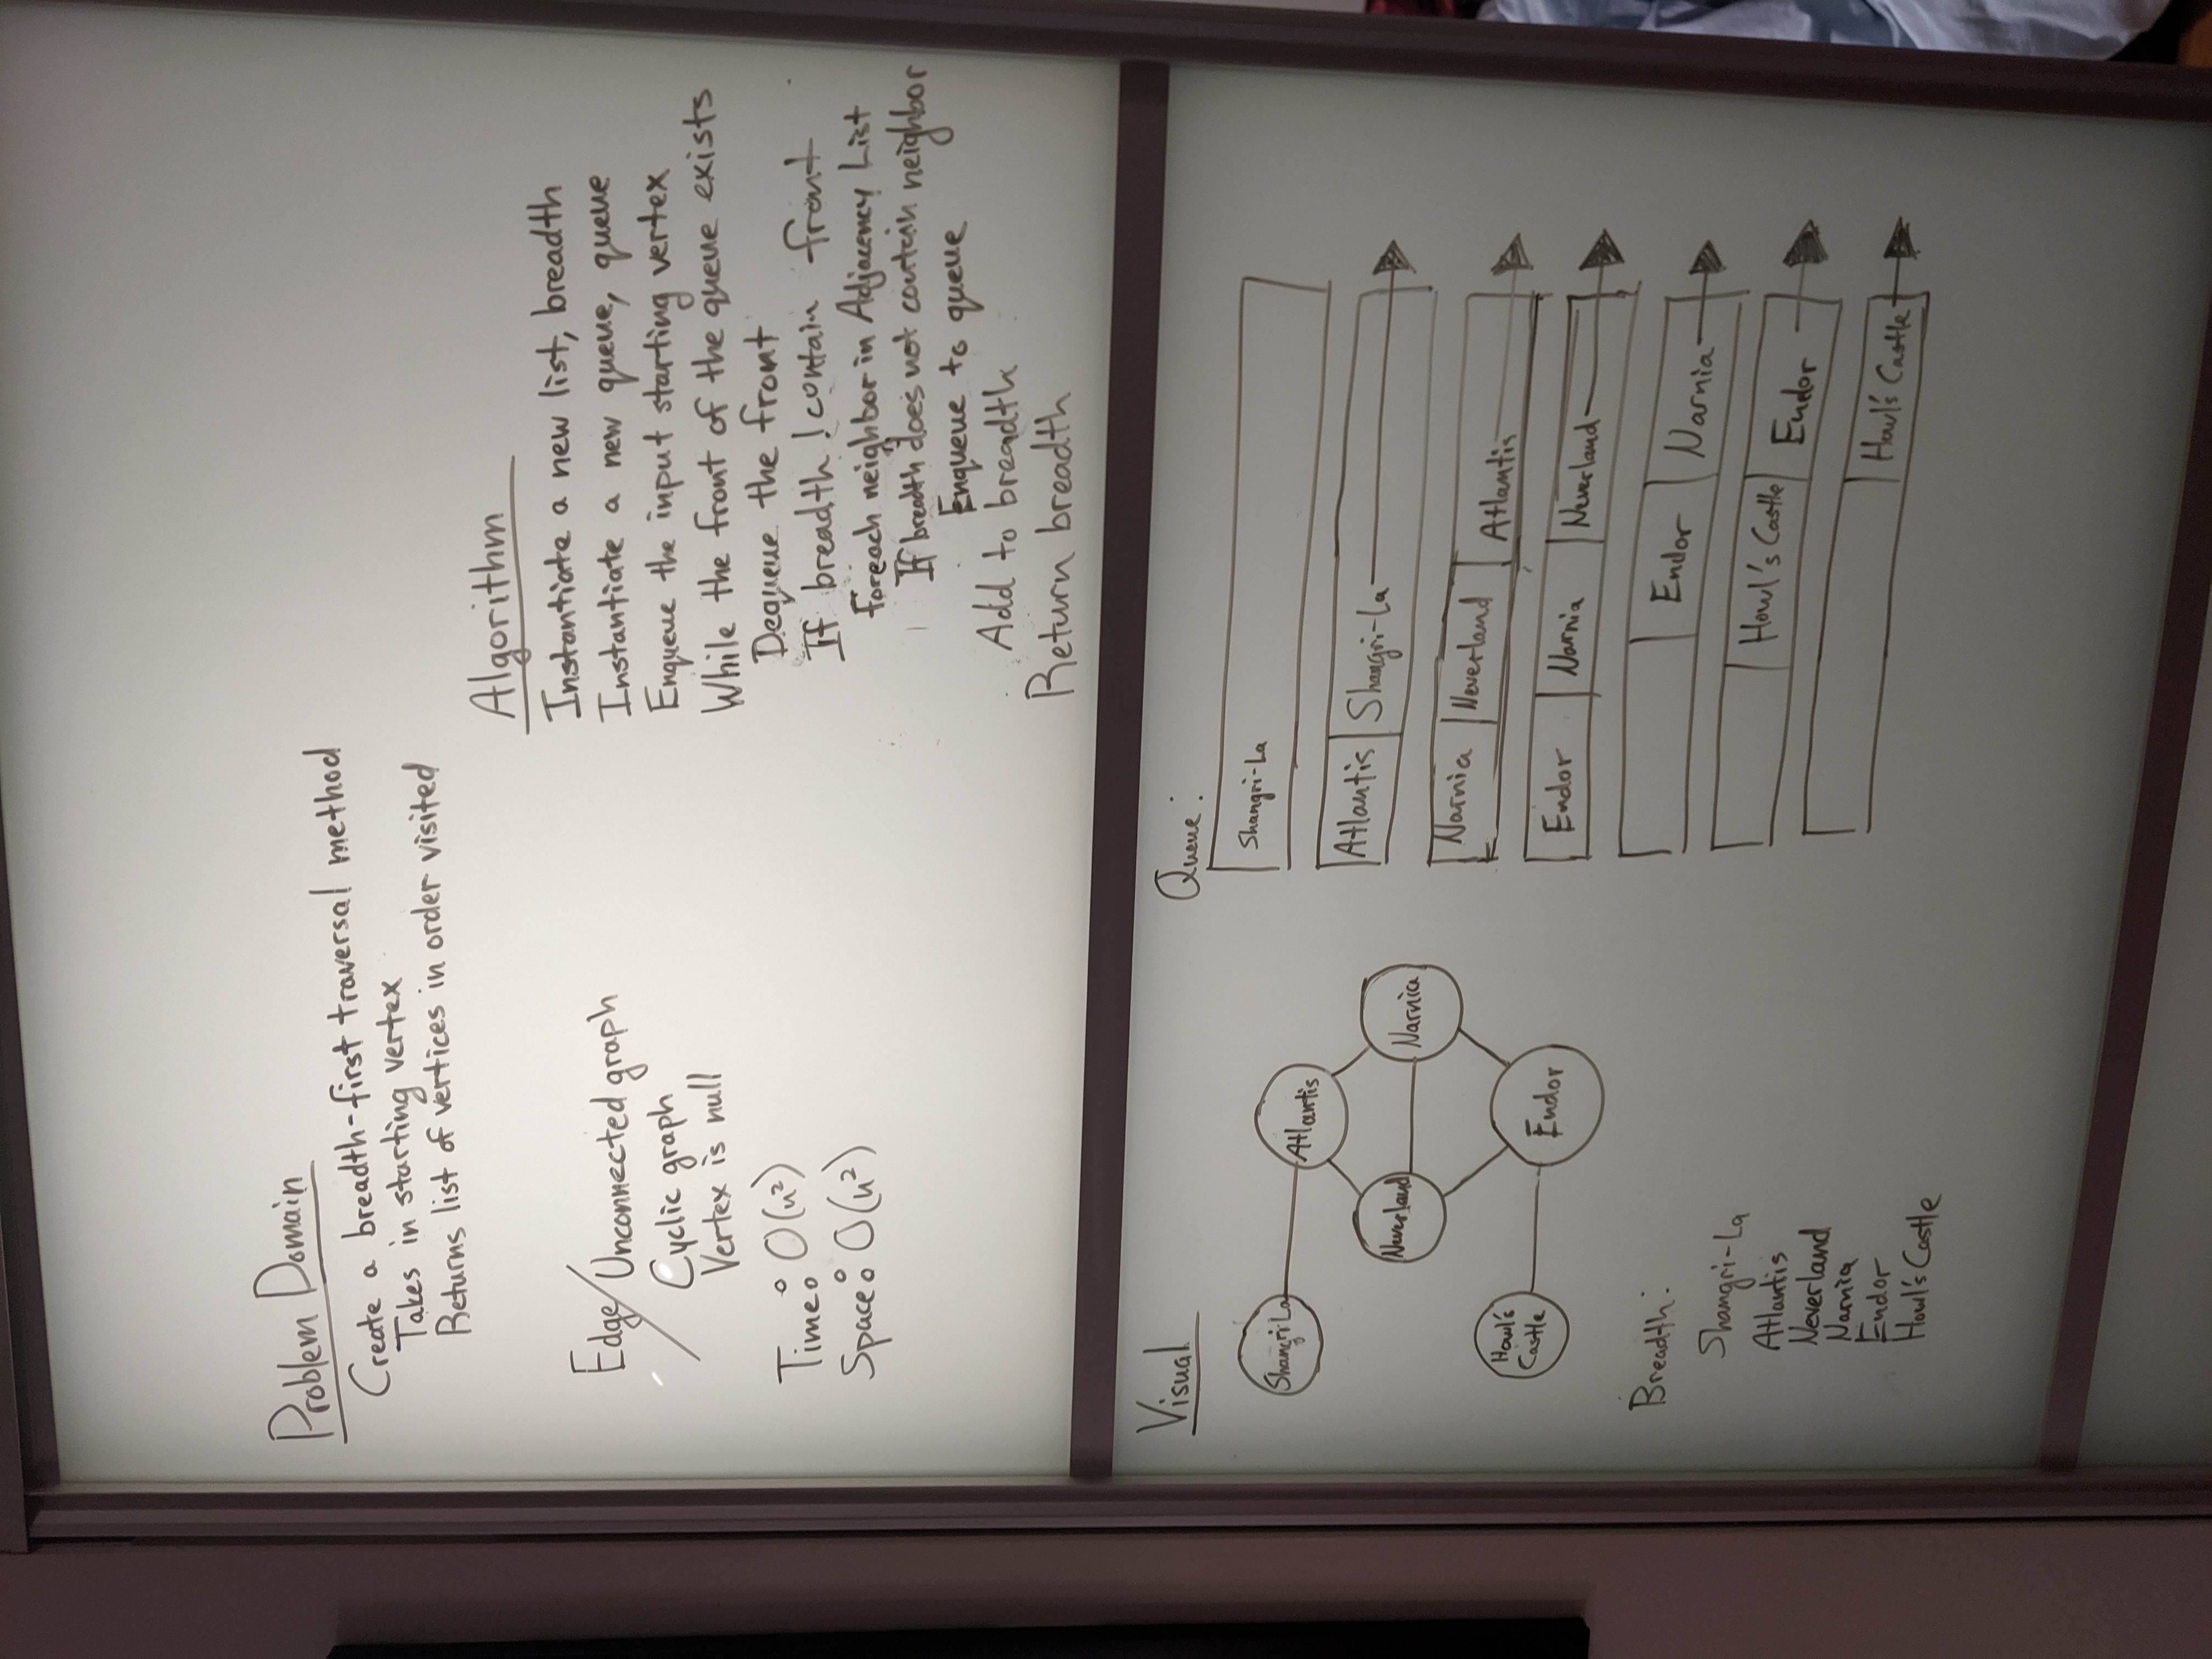 Problem Domain
Create a breadth-first traversal method
Takes in starting vertex
Returns list of vertices in order visited
Edge/ Unconnected graph
Cyclic graph
Vertex is null
Time: O(n²)
Space: O(n²)
Algorithm
Instantiate a new list, breadth
Instantiate a new queue, queue
Enqueue the input starting vertex
While the front of the queue exists
Dequeue the front
If breadth !contain front
Foreach neighbor in Adjacency List
If breadth does not contain neighbor
Enqueue to queue
Add to breadth
Return breadth
Visual
Shangri-La
Atlantis
Neverland
Narnia
Howl's
Castle
Endor
Breadth:
Shangri-La
Atlantis
Neverland
Narnia
Endor
Howl's Castle
Queue:
Shangri-La
Atlantis Shangri-La
Narnia Neverland Atlantis
Endor Narnia Neverland
Endor Narnia
Howl's Castle Endor
Howl's Castle